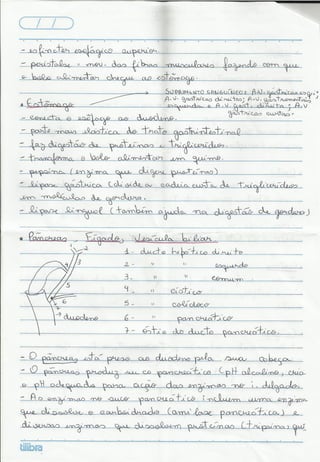 - esfíncter esofágico superior.
- peristalse = mov. das fibras musculares fazendo com que
o bolo alimentar chegue ao estômago.
SUPRIMENTO SANGUÍNEO:
• Estômago
- conecta o esôfago ao duodeno.
- parte mais elástica do trato gastrintestinal
- faz digestão de proteínas e triglicerídeos.
- transforma o bolo alimentar em quimo.
- pepsina (enzima que digere proteína)
- lipase gástrica (divide a cadeia curta de triglicerídeos
em moléculas de gordura.
- lipase lingual (também ajuda na digestão de gordura)
• Pâncreas, Fígado, Vesícula biliar
1 - ducto hepático direito
2 - " " esquerdo
3 - " " comum
4 - " cístico
5 - " colédoco
6 - " pancreático
7 - do ducto pancreático.
duodeno
- O pâncreas está preso ao duodeno pela sua cabeça.
- O pâncreas produz suco pancreático (pH alcalino, cria
o pH adequado para ação das enzimas no i. delgado.
- As enzimas no suco pancreático incluem uma enzima
que dissolve o carboidrato (amilase pancreática) e
diversas enzimas que dissolvem proteínas (tripsina) qui
tilibra